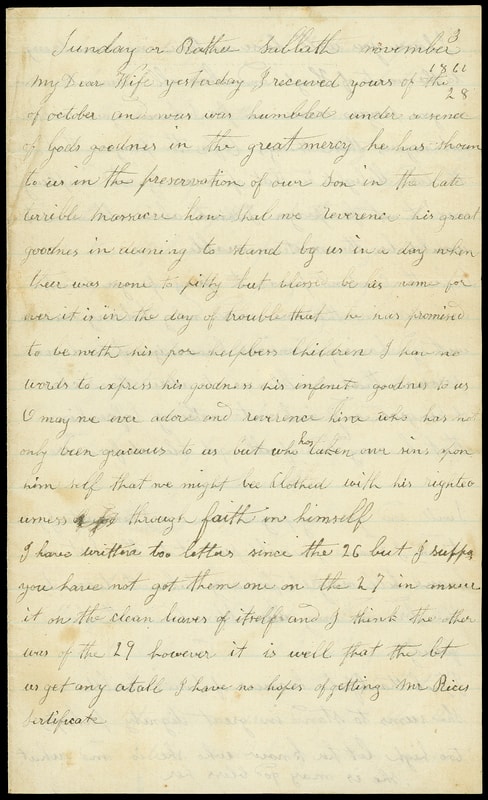 Sunday or Rather Sabbath november 3
1861
My Dear Wife yesterday I received yours of the
28
of october and was was humbled under a sence
of Gods goodness in the great mercy he has shown
to us in the preservation of our Son in the late
terrible Massacre how shal we reverence his great
goodness in deaning to stand by us in a day when
their was none to pitty but blessd be his name for
ever it is in the day of trouble that he has promised
to be with his por helpless children I have no
words to express his goodness his infenit goodness to us
O may we ever adore and reverence him who has not
only been gracious to us but who has taken our sins upon
him self that we might bee Clothed with his righteo
usness through faith in himself
I have written too letters since the 26 but I suppos
you have not got them one on the 27 in
it on the clean leaves of itself and I think the other
was of the 29 however it is well that the let
us get any atall I have no hopes of getting Mr Rices
Sertificate